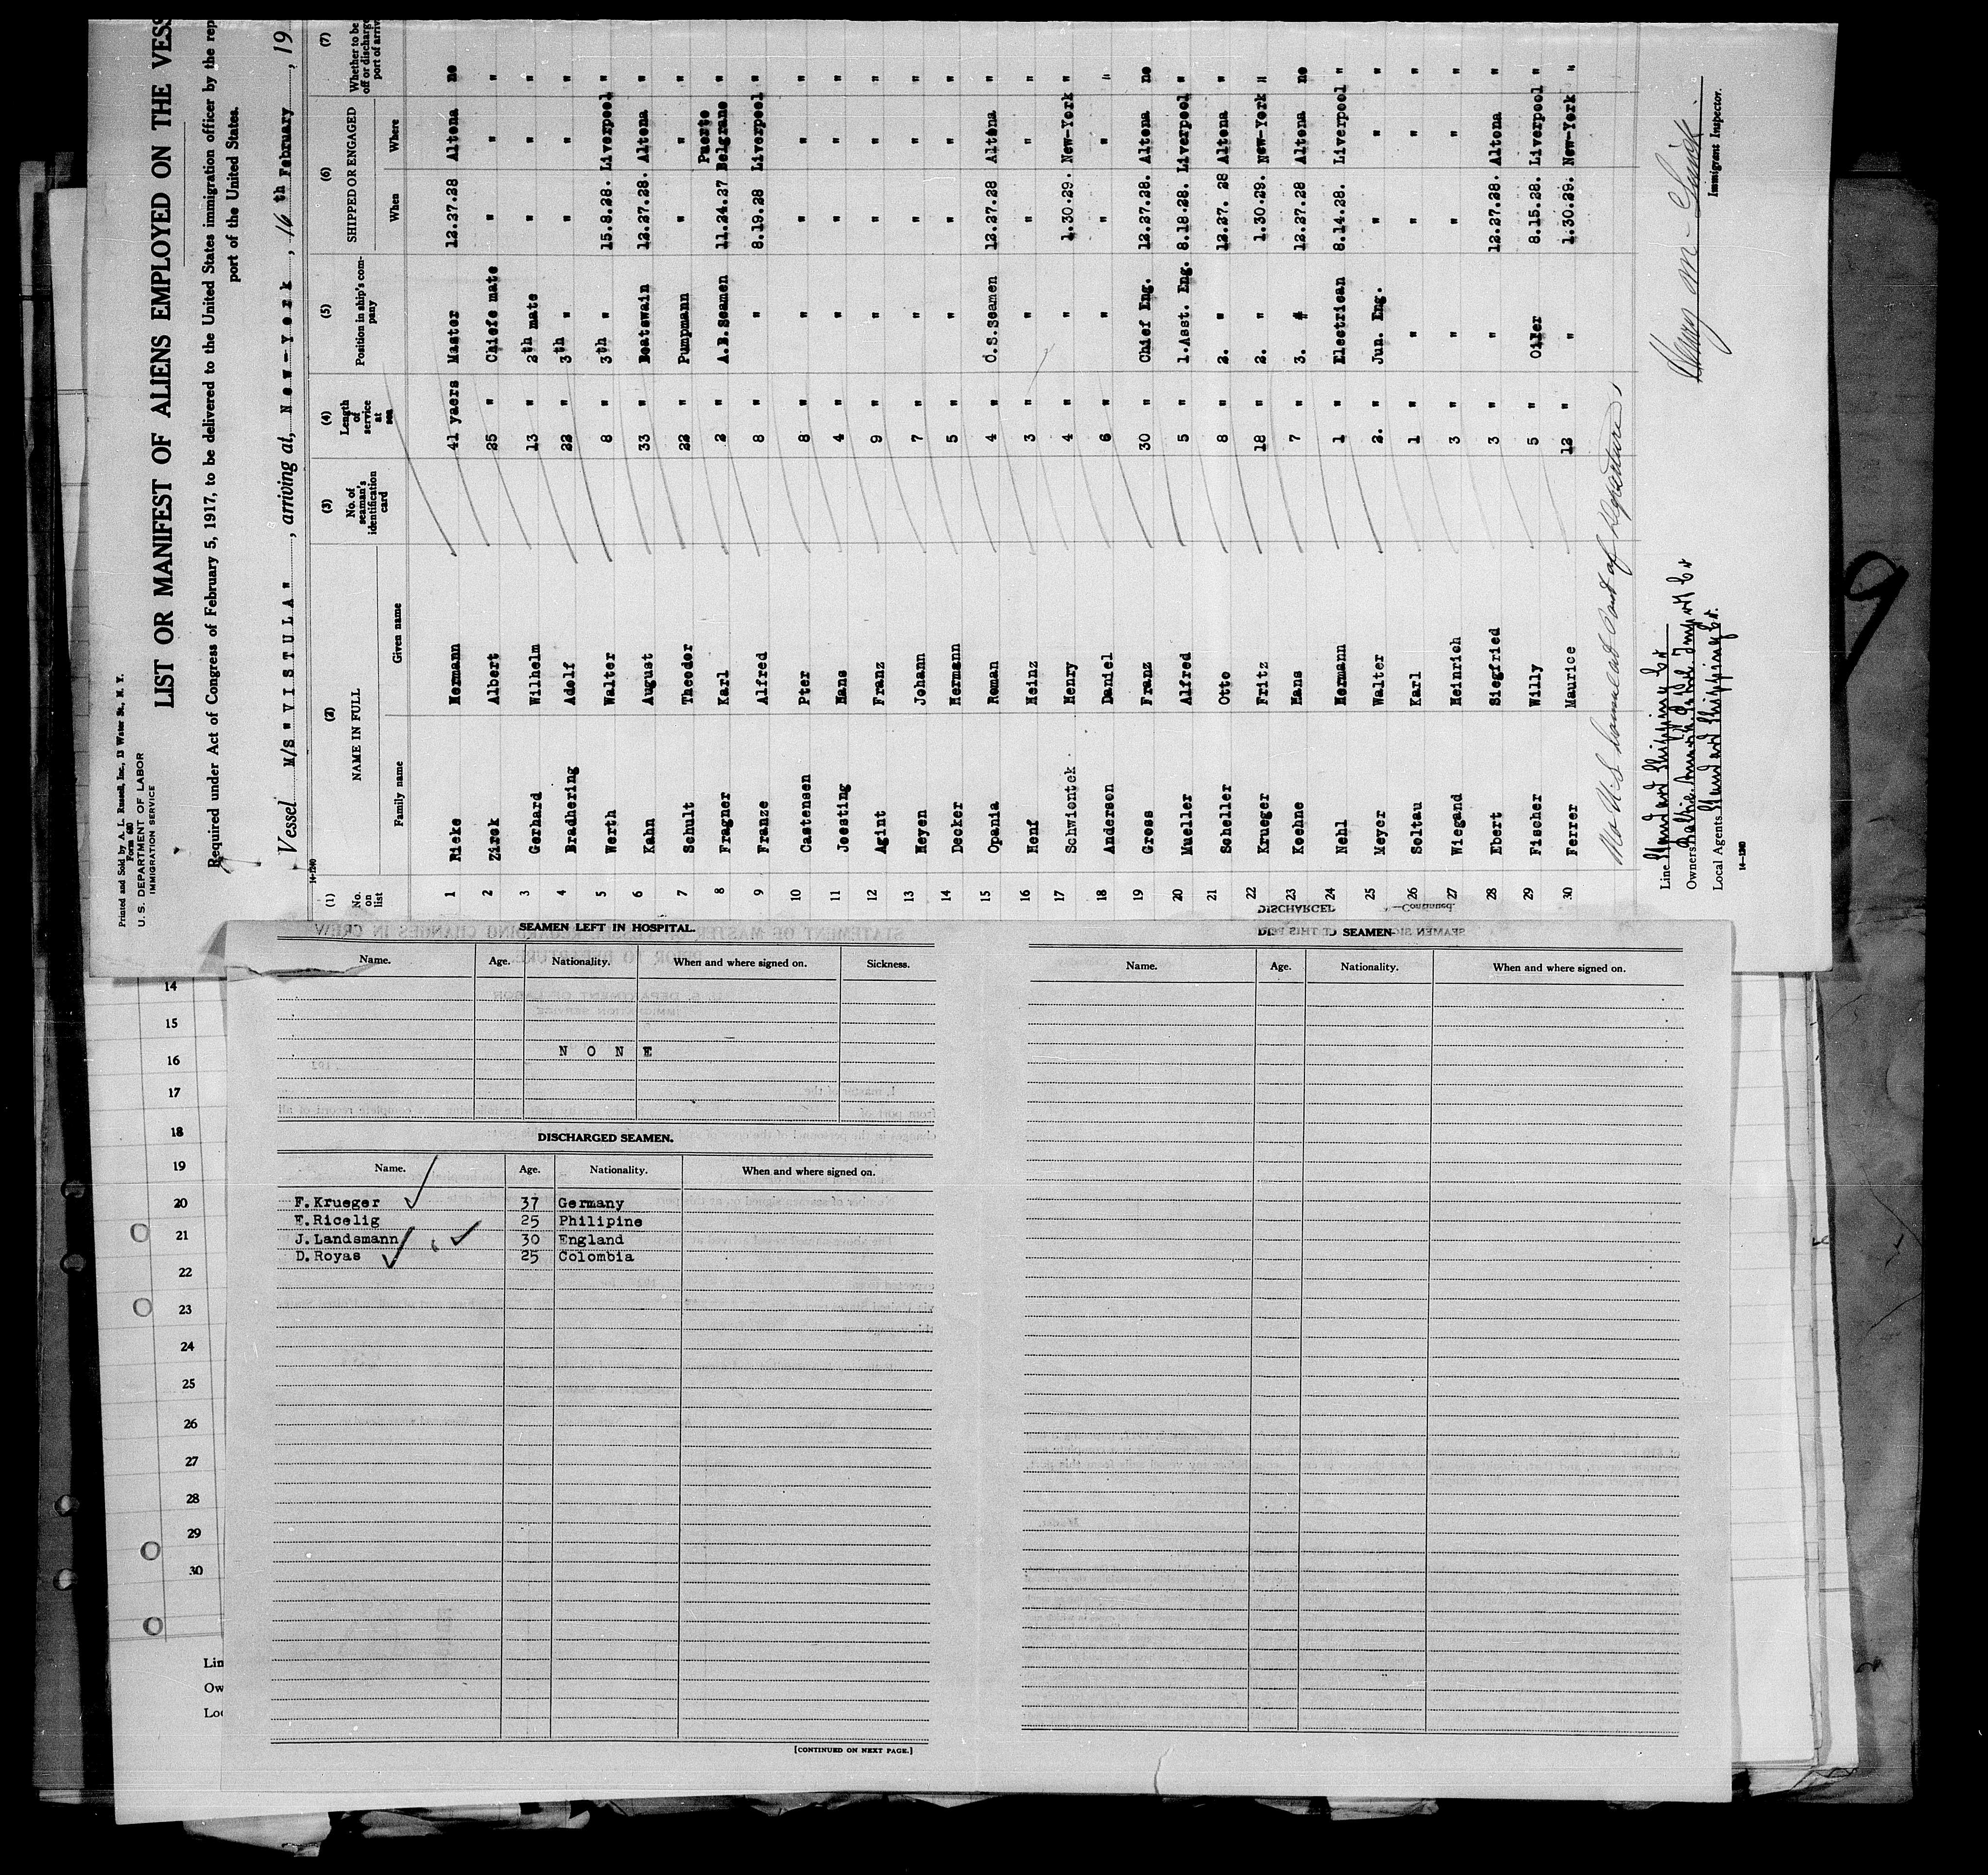 Printed and Sold by A. L. Russell, Inc., 13 Water St., N. Y.
Form 680
U. S. DEPARTMENT OF LABOR
IMMIGRATION SERVICE
LIST OR MANIFEST OF ALIENS EMPLOYED ON THE VESS
Required under Act of Congress of February 5, 1917, to be delivered to the United States immigration officer by the rep
port of the United States.
Vessel M/S "VISTULA", arriving at, New-York, 16 th February, 19
14-1240
(1) (2) (3) (4) (5) (6) (7)
No. on list NAME IN FULL No. of seaman's identification card Length of service at sea Position in ship's company SHIPPED OR ENGAGED Whether to be off or discharg port of arriv
Family name Given name When Where
1 Rieke Hermann 41 yaers Master 12.27.28 Altona no
2 Zirok Albert 25 " Chiefe mate " " "
3 Gerhard Wilhelm 13 " 2th mate " " "
4 Bradhering Adolf 22 " 3th " " " "
5 Werth Walter 8 " 3th " 15.8.28. Liverpool "
6 Kahn August 33 " Boatswain 12.27.28. Altona "
7 Schult Theodor 22 " Pumpmann " " "
8 Fragner Karl 2 " A.B.Seamen 11.24.27 Puerto Belgrano "
9 Franze Alfred 8 " " 8.19.28 Liverpool "
10 Castensen Pter 8 " " " " "
11 Joosting Hans 4 " " " " "
12 Agint Franz 9 " " " " "
13 Heyen Johann 7 " " " " "
14 Decker Hermann 5 " " " " "
15 Opania Roman 4 " O.S.Seamen 12.27.28 Altona "
16 Henf Heinz 3 " " " " "
17 Schwiontek Henry 4 " " 1.30.29. New-York "
18 Anderson Daniel 6 " " " " "
19 Gross Franz 30 " Chief Eng. 12.27.28. Altona no
20 Mueller Alfred 5 " 1.Asst. Eng. 8.18.28. Liverpool "
21 Scheller Otto 8 " 2. " 12.27. 28 Altona "
22 Krueger Fritz 18 " 2. " 1.30.29. New-York "
23 Koehne Hans 7 " 3. " 12.27.28 Altona no
24 Nehl Hermann 1 " Electrican 8.14.28. Liverpool "
25 Meyer Walter 2. " Jun. Eng. " " "
26 Soltau Karl 1 " " " " "
27 Wiegand Heinrich 3 " " " " "
28 Ebert Siegfried 3 " " 12.27.28. Altona "
29 Fischer Willy 5 " Oiler 8.15.28. Liverpool "
30 Ferrer Maurice 12 " " 1.30.29. New-York "
Line
Owners
Local Agents
14-1240
Immigrant Inspector.
SEAMEN LEFT IN HOSPITAL.
Name. Age. Nationality. When and where signed on. Sickness.
NONE
DISCHARGED SEAMEN.
Name. Age. Nationality. When and where signed on.
F.Krueger 37 Germany
E.Ricelig 25 Philipine
J.Landsmann 30 England
D.Royas 25 Colombia
[CONTINUED ON NEXT PAGE.]
SEAMEN
Name. Age. Nationality. When and where signed on.
14
15
16
17
18
19
20
21
22
23
24
25
26
27
28
29
30
Lin
Ow
Loc
9